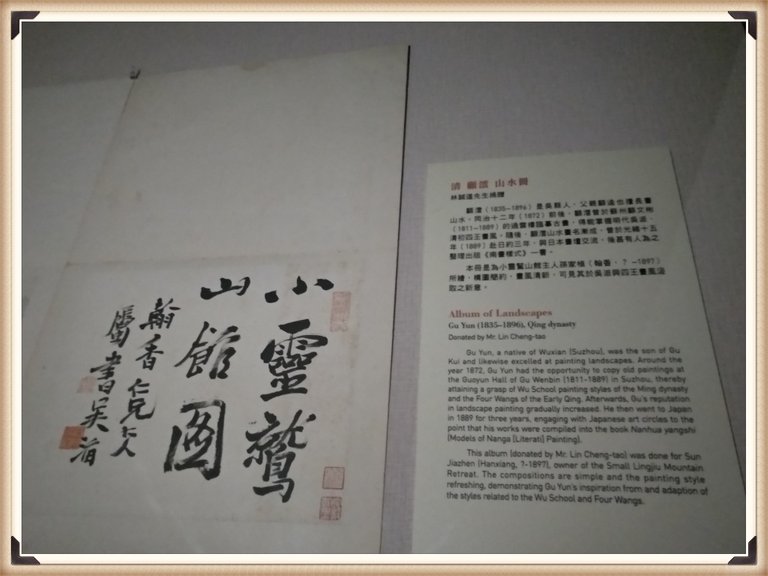 小靈鷲
山館圖
翰香仁兄大人
屬書吳滔
清 顧澐 山水冊
林誠道先生捐贈
顧澐(1835-1896)是吳縣人,父親顧逵也擅長畫
山水。同治十二年(1872)前後,顧澐曾於蘇州顧文彬
(1811-1889)的過雲樓臨摹古畫,得能掌握明代吳派、
清初四王畫風。隨後,顧澐山水畫名漸成,曾於光緒十五
年(1889)赴日約三年,與日本畫壇交流,後甚有人為之
整理出版《南畫樣式》一書。
本冊是為小靈鷲山館主人孫家楨(翰香,?-1897)
所繪,構圖簡約、畫風清新,可見其於吳派與四王畫風汲
取之新意。
Album of Landscapes
Gu Yun (1835-1896), Qing dynasty
Donated by Mr. Lin Cheng-tao
Gu Yun, a native of Wuxian (Suzhou), was the son of Gu
Kui and likewise excelled at painting landscapes. Around the
year 1872, Gu Yun had the opportunity to copy old paintings at
the Guoyun Hall of Gu Wenbin (1811-1889) in Suzhou, thereby
attaining a grasp of Wu School painting styles of the Ming dynasty
and the Four Wangs of the Early Qing. Afterwards, Gu's reputation
in landscape painting gradually increased. He then went to Japan
in 1889 for three years, engaging with Japanese art circles to the
point that his works were compiled into the book Nanhua yangshi
(Models of Nanga [Literati] Painting).
This album (donated by Mr. Lin Cheng-tao) was done for Sun
Jiazhen (Hanxiang, ?-1897), owner of the Small Lingjiu Mountain
Retreat. The compositions are simple and the painting style
refreshing, demonstrating Gu Yun's inspiration from and adaption of
the styles related to the Wu School and Four Wangs.